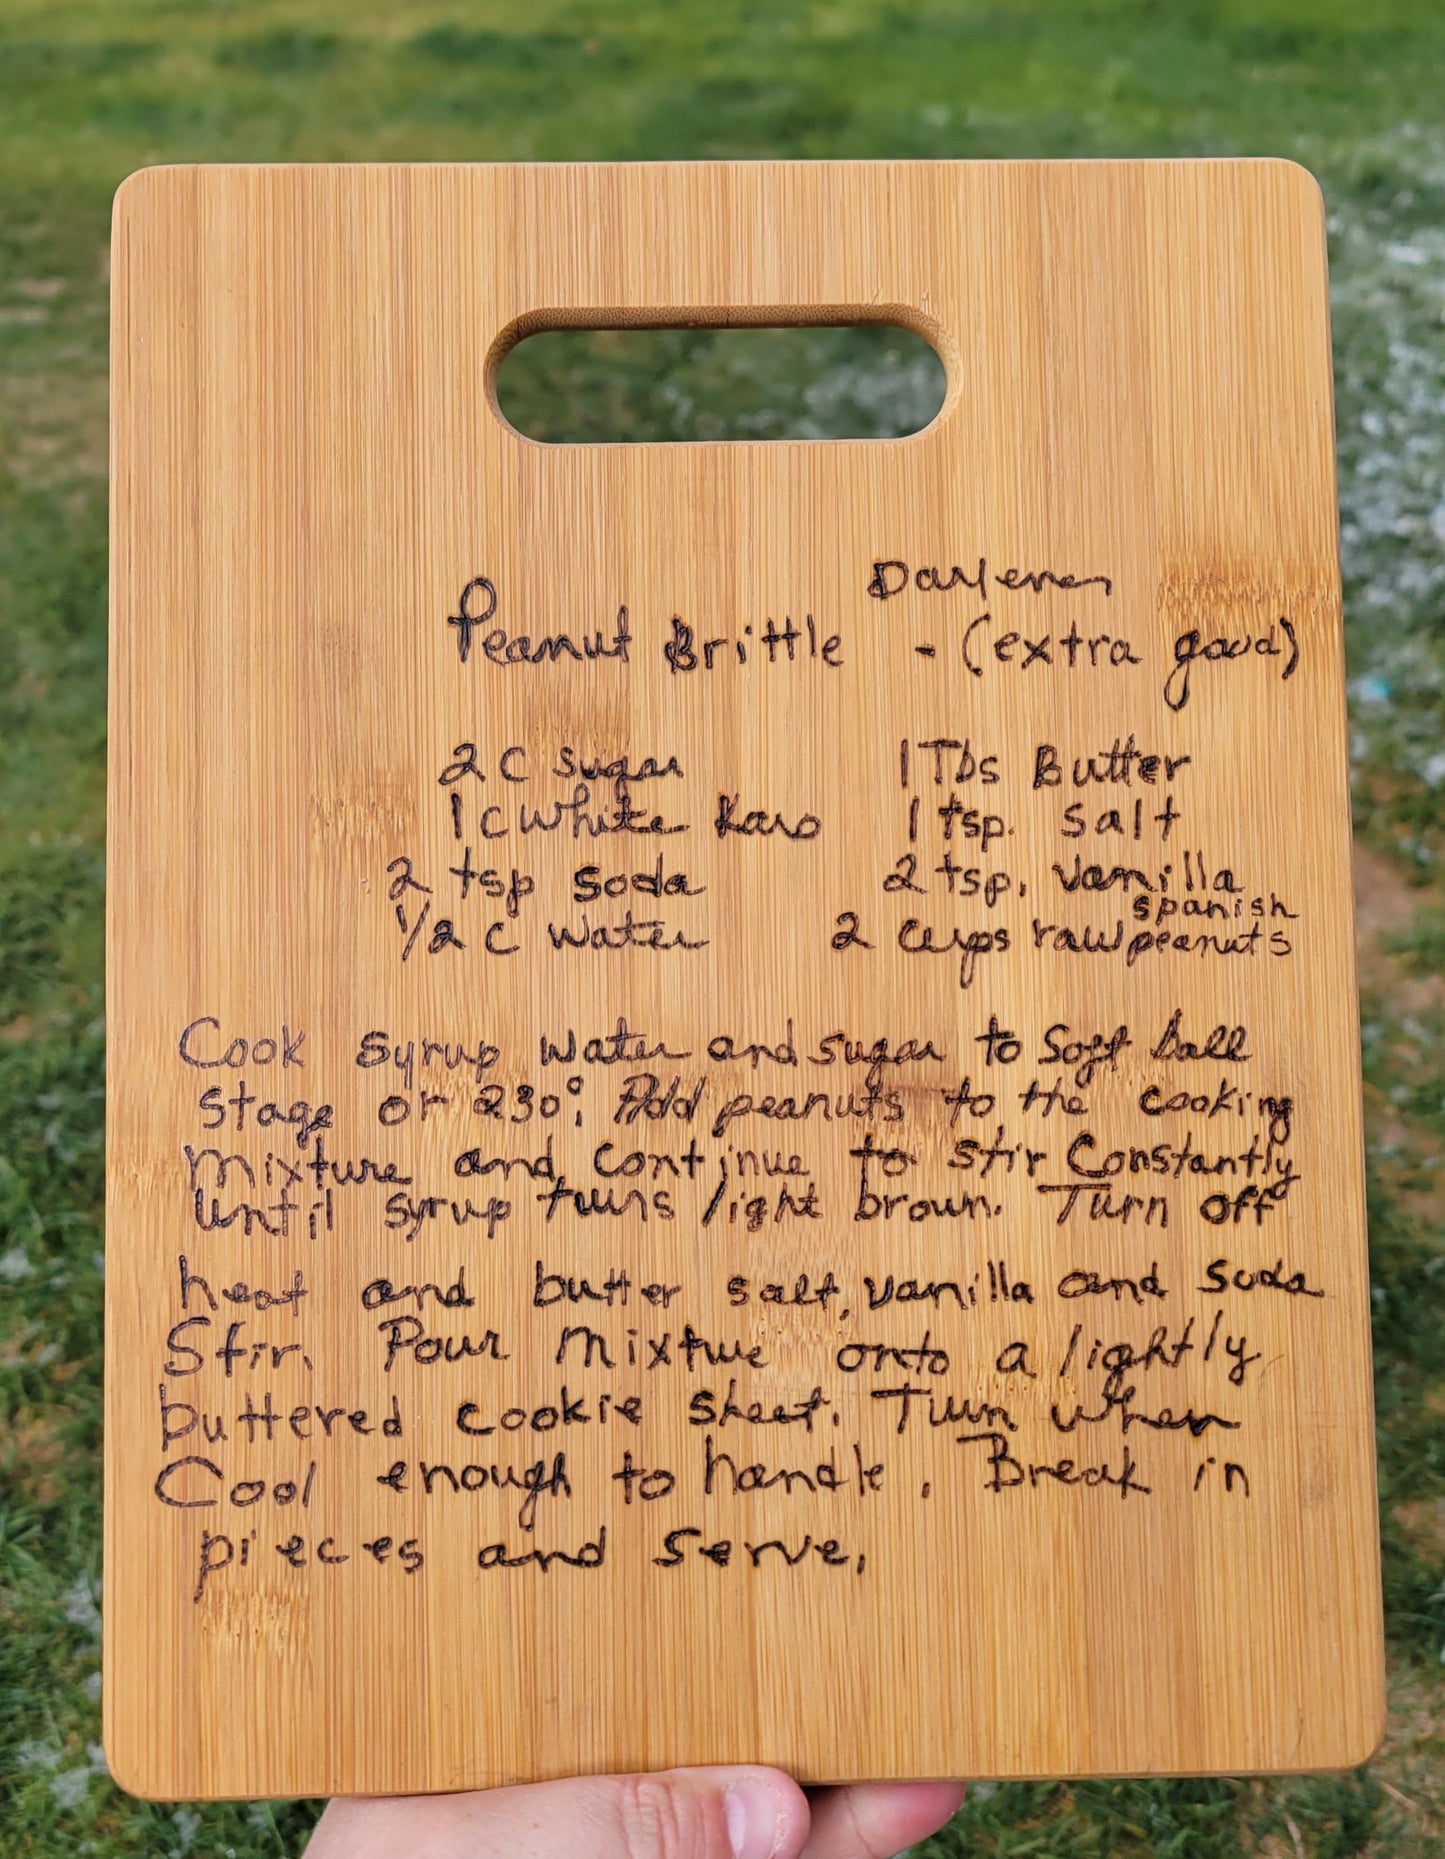 Darlenes
Peanut Brittle - (extra good)
2 C sugar
1 C White Karo
2 tsp soda
1/2 C Water
1 Tbs Butter
1 tsp. salt
2 tsp. vanilla
spanish
2 cups raw peanuts
Cook syrup water and sugar to soft ball
stage or 230°; Add peanuts to the cooking
mixture and continue to stir Constantly
until syrup turns light brown. Turn off
heat and butter salt, vanilla and soda
Stir. Pour Mixture onto a lightly
buttered cookie sheet. Turn when
Cool enough to handle. Break in
pieces and serve.